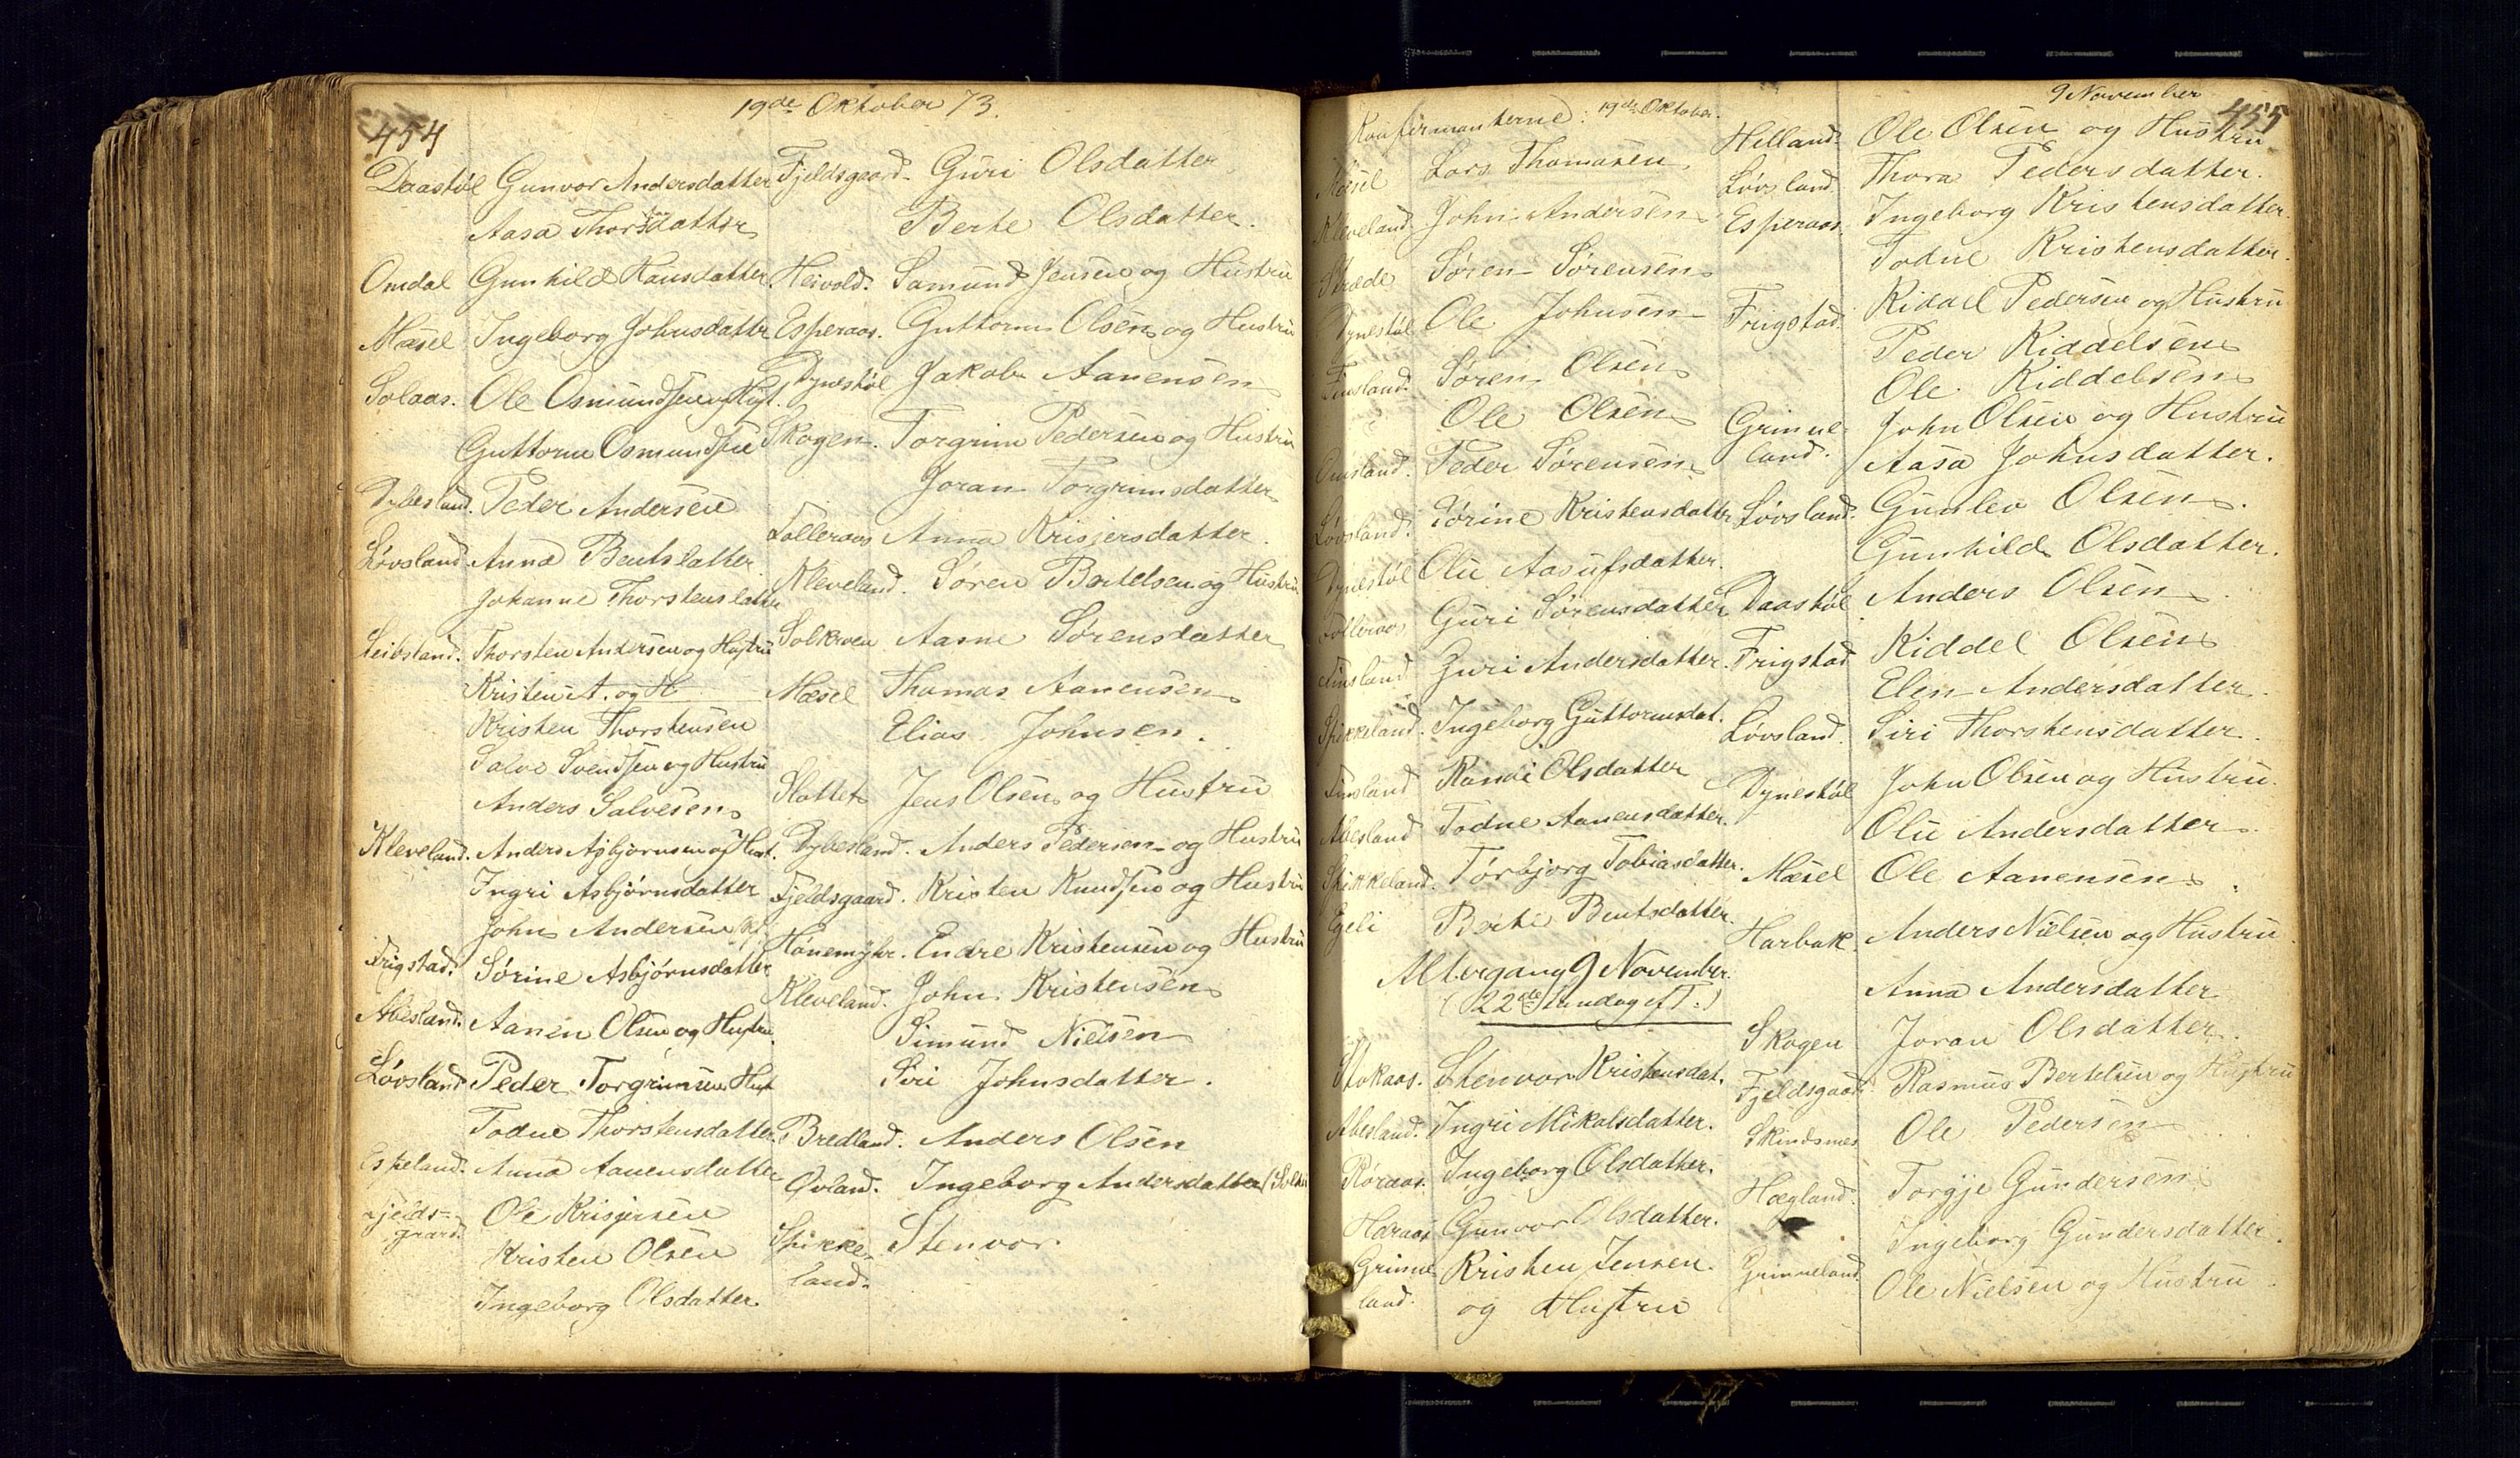 454
19de Oktober 73.
Daastøl Gunvor Andersdatter
Aasa Thorsdatter
Omdal Gunhild Hansdatter
Mæsel Ingeborg Johnsdatter
Solaas. Ole Osmundsen og Hust.
Guttorm Osmundsen
Dybesland. Peder Andersen
Løvsland Anna Bentsdatter
Johanne Thorstensdatter
Leibsland. Thorsten Andersen og Hustru
Kristen A. og H
Kristen Thorstensen
Salve Svendsen og Hustru
Anders Salvesen
Kleveland. Anders Asbjørnsen og Hust.
Ingri Asbjørnsdatter
John Andersen
Frigstad. Sørine Asbjørnsdatter
Abesland. Aanen Olsen og Hustru
Løvsland Peder Torgrimsen Hust
Todne Thorstensdatter
Espeland. Anna Aanensdatter
Fjelds=
gaard. Ole Krisjersen
Kristen Olsen
Ingeborg Olsdatter
Fjeldsgaard. Guri Olsdatter
Berte Olsdatter.
Heivold. Samund Jensen og Hustru
Esperaas. Guttorm Olsen og Hustru
Dynestøl Jakob Aanensen
Skogen. Torgrim Pedersen og Hustru
Joran Torgrimsdatter
Tolleraas Anna Krisjersdatter.
Kleveland. Søren Bertelsen og Hustru
Solkroen Aasne Sørensdatter
Mæsel Thomas Aanensen
Elias Johnsen.
Slottet Jens Olsen og Hustru
Dybesland. Anders Pedersen og Hustru
Fjeldsgaard. Kristen Knudsen og Hustru
Hønemyhr. Endre Kristensen og Hustru
Kleveland. John Kristensen
Simund Nielsen
Siri Johnsdatter.
Bredland. Anders Olsen
Qvland. Ingeborg Andersdatter
Spikke-
land. Stenvor
455
Konfirmanterne: 19de Oktober.
Mæsel Lars Thomasen
Kleveland John Andersen
Stræde Søren Sørensen
Dynestøl Ole Johnsen
Finsland. Søren Olsen
Ole Olsen
Omsland. Peder Sørensen
Løvsland. Tørine Kristensdatter
Dynestøl Olu Aasufsdatter.
Tolleraas Guri Sørensdatter
Finsland Guri Andersdatter.
Spikkeland. Ingeborg Guttormsdat.
Finsland Randi Olsdatter
Abesland Todne Aanensdatter.
Spikkeland. Torbjorg Tobiasdatter.
Egeli Berte Bentsdatter.
Altergang 9 November.
(22de Søndag ef T:)
Stokaas. Stenvor Kristensdat.
Abesland. Ingri Mikalsdatter.
Røraas. Ingeborg Olsdatter.
Haraas Gunvor Olsdatter.
Grimne-
land. Kristen Jensen.
og Hustru
9 November
Helland. Ole Olsen og Hustru
Løvsland. Thora Pedersdatter.
Esperaas. Ingeborg Kristensdatter.
Todne Kristensdatter.
Frigstad. Kiddel Pedersen og Hustru
Peder Kiddelsen
Ole Kiddelsen
Grimne-
land. John Olsen og Hustru
Aasa Johnsdatter.
Løvsland. Gunlev Olsen.
Gunhild Olsdatter.
Daastøl Anders Olsen
Frigstad Kiddel Olsen
Elen Andersdatter.
Løvsland. Siri Thorstensdatter.
Dynestøl John Olsen og Hustru.
Olu Andersdatter.
Mæsel Ole Aanensen.
Harbak. Anders Nielsen og Hustru
Anna Andersdatter
Skogen Joran Olsdatter.
Fjeldsgaard Rasmus Bertelsen og Hustru
Skindsnes Ole Pedersen
Hægland. Torgje Gundersen
Ingeborg Gundersdatter.
Grimneland Ole Nielsen og Hustru.